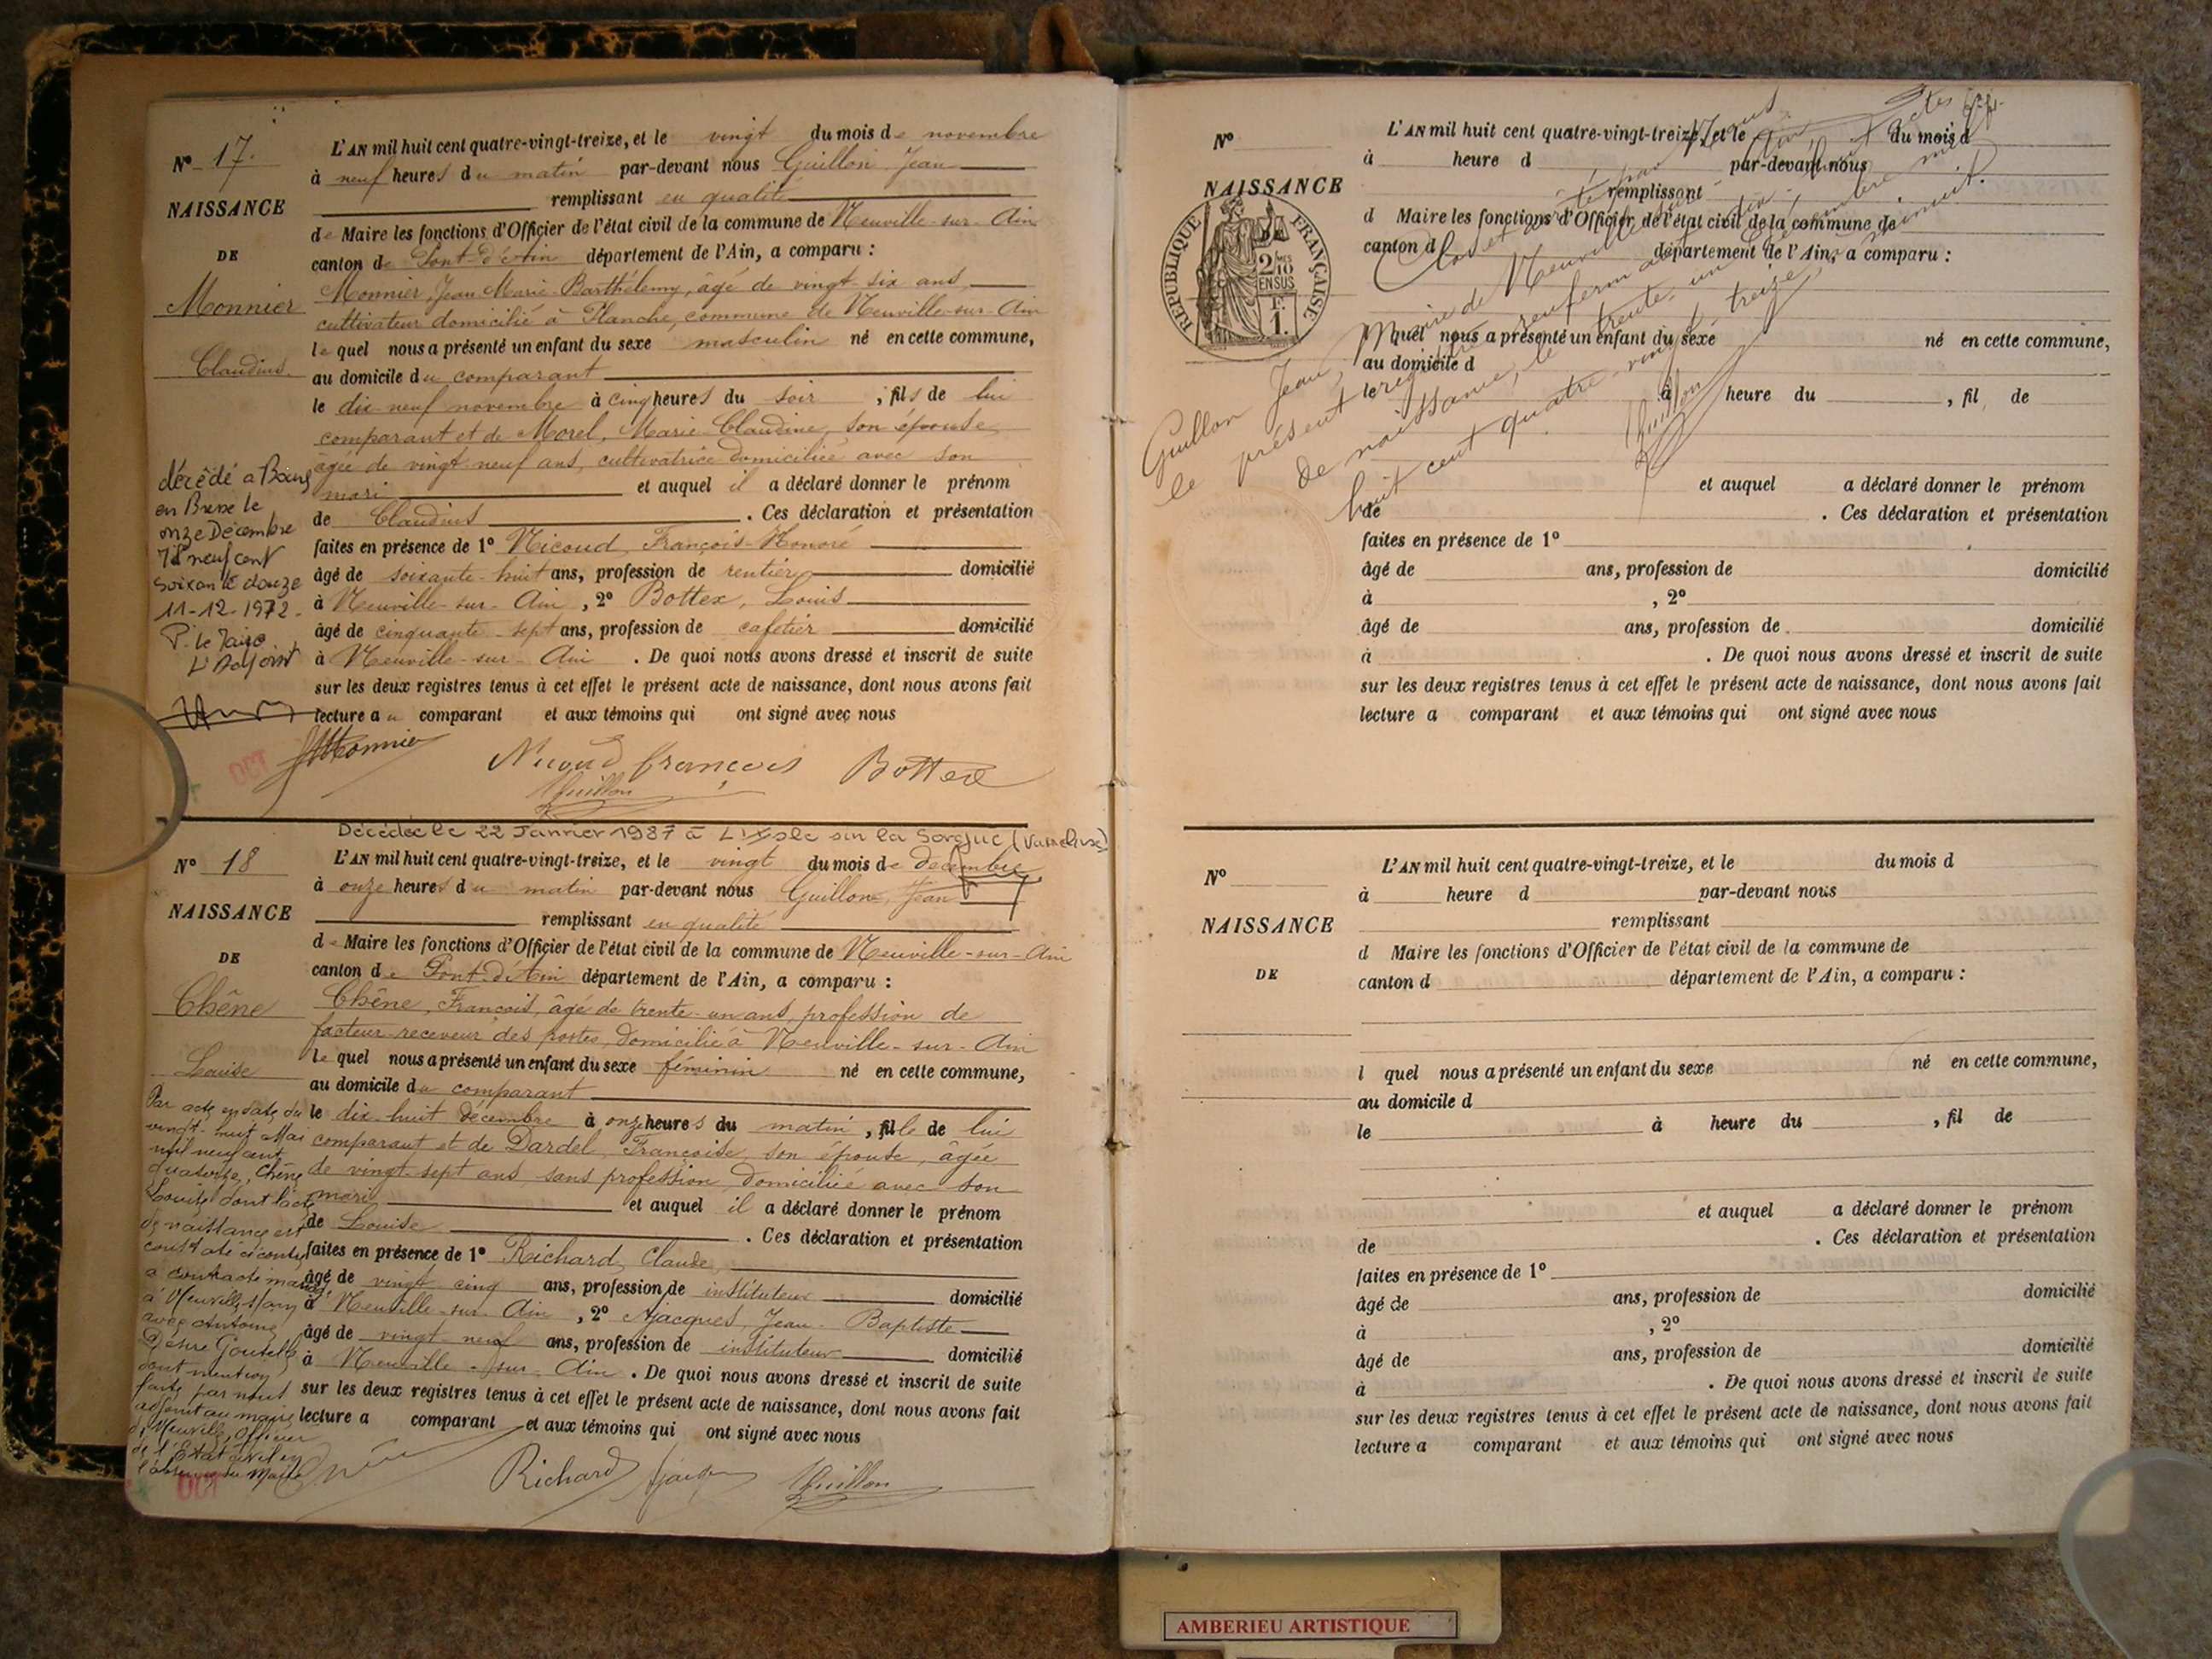 N° 17.
NAISSANCE
DE
Monnier
Claudius.
L'AN mil huit cent quatre-vingt-treize, et le vingt du mois de novembre
à neuf heures du matin par-devant nous Guillon Jean
remplissant en qualité
de Maire les fonctions d'Officier de l'état civil de la commune de Neuville-sur-Ain
canton de Pont-d'Ain département de l'Ain, a comparu :
Monnier, Jean Marie Barthélemy, âgé de vingt-six ans
cultivateur domicilié à Planche, commune de Neuville-sur-Ain
lequel nous a présenté un enfant du sexe masculin né en cette commune,
au domicile du comparant
le dix-neuf novembre à cinq heures du soir, fils de lui
comparant et de Morel, Marie Claudine, son épouse,
âgée de vingt-neuf ans, cultivatrice domiciliée avec son
mari et auquel il a déclaré donner le prénom
de Claudius. Ces déclaration et présentation
faites en présence de 1° Nicoud, François-Honoré
âgé de soixante-huit ans, profession de rentier domicilié
à Neuville-sur-Ain, 2° Bottex, Louis
âgé de cinquante-sept ans, profession de cafetier domicilié
à Neuville-sur-Ain. De quoi nous avons dressé et inscrit de suite
sur les deux registres tenus à cet effet le présent acte de naissance, dont nous avons fait
lecture au comparant et aux témoins qui ont signé avec nous
décédé a Bourg
en Bresse le
onze Décembre
neuf cent
soixante douze
11-12-1972.
P. le Maire
L'Adjoint
JMonnier Nicoud françois Bottex
Guillon
OCT
Décédée le 22 Janvier 1987 à L'Isle sur la Sorgue (Vaucluse)
N° 18
NAISSANCE
DE
Chêne
Louise
L'AN mil huit cent quatre-vingt-treize, et le vingt du mois de décembre
à onze heures du matin par-devant nous Guillon, Jean
remplissant en qualité
de Maire les fonctions d'Officier de l'état civil de la commune de Neuville-sur-Ain
canton de Pont-d'Ain département de l'Ain, a comparu :
Chêne, François, âgé de trente-un ans, profession de
facteur-receveur des postes, domicilié à Neuville-sur-Ain
lequel nous a présenté un enfant du sexe féminin né en cette commune,
au domicile du comparant
le dix-huit décembre à onze heures du matin, fille de lui
comparant et de Dardel, Françoise, son épouse, âgée
de vingt-sept ans sans profession, domiciliée avec son
mari et auquel il a déclaré donner le prénom
de Louise. Ces déclaration et présentation
faites en présence de 1° Richard, Claude,
âgé de vingt-cinq ans, profession de instituteur domicilié
à Neuville-sur-Ain, 2° Ajacques, Jean-Baptiste
âgé de vingt-neuf ans, profession de instituteur domicilié
à Neuville-sur-Ain. De quoi nous avons dressé et inscrit de suite
sur les deux registres tenus à cet effet le présent acte de naissance, dont nous avons fait
lecture a comparant et aux témoins qui ont signé avec nous
Par acte en date du
vingt-huit Mai
mil neuf cent
quatorze, Chêne
Louise dont l'acte
de naissance est
constaté ci contre
a contracté mariage
à Neuville s/ain
avec Antoine
Désiré
dont mention
faite par nous
adjoint au maire
de Neuville, Officier
de l'Etat civil en
l'absence du Maire
Richard Guillon
OCT
N°
NAISSANCE
RÉPUBLIQUE FRANÇAISE
2/10 MES
EN SUS
1F.
L'AN mil huit cent quatre-vingt-treize, et le du mois d
à heure d par-devant nous
remplissant
d Maire les fonctions d'Officier de l'état civil de la commune de
canton d département de l'Ain, a comparu :
l quel nous a présenté un enfant du sexe né en cette commune,
au domicile d
le à heure du , fil de
et auquel a déclaré donner le prénom
de . Ces déclaration et présentation
faites en présence de 1°
âgé de ans, profession de domicilié
à , 2°
âgé de ans, profession de domicilié
à . De quoi nous avons dressé et inscrit de suite
sur les deux registres tenus à cet effet le présent acte de naissance, dont nous avons fait
lecture a comparant et aux témoins qui ont signé avec nous
Clos et arrêté par nous
Guillon Jean, Maire de Neuville-sur-Ain,
le présent registre renfermant dix-huit actes
de naissance, le trente-un décembre mil
huit cent quatre-vingt-treize, à minuit.
Guillon
N°
NAISSANCE
DE
L'AN mil huit cent quatre-vingt-treize, et le du mois d
à heure d par-devant nous
remplissant
d Maire les fonctions d'Officier de l'état civil de la commune de
canton d département de l'Ain, a comparu :
l quel nous a présenté un enfant du sexe né en cette commune,
au domicile d
le à heure du , fil de
et auquel a déclaré donner le prénom
de . Ces déclaration et présentation
faites en présence de 1°
âgé de ans, profession de domicilié
à , 2°
âgé de ans, profession de domicilié
à . De quoi nous avons dressé et inscrit de suite
sur les deux registres tenus à cet effet le présent acte de naissance, dont nous avons fait
lecture a comparant et aux témoins qui ont signé avec nous
AMBERIEU ARTISTIQUE